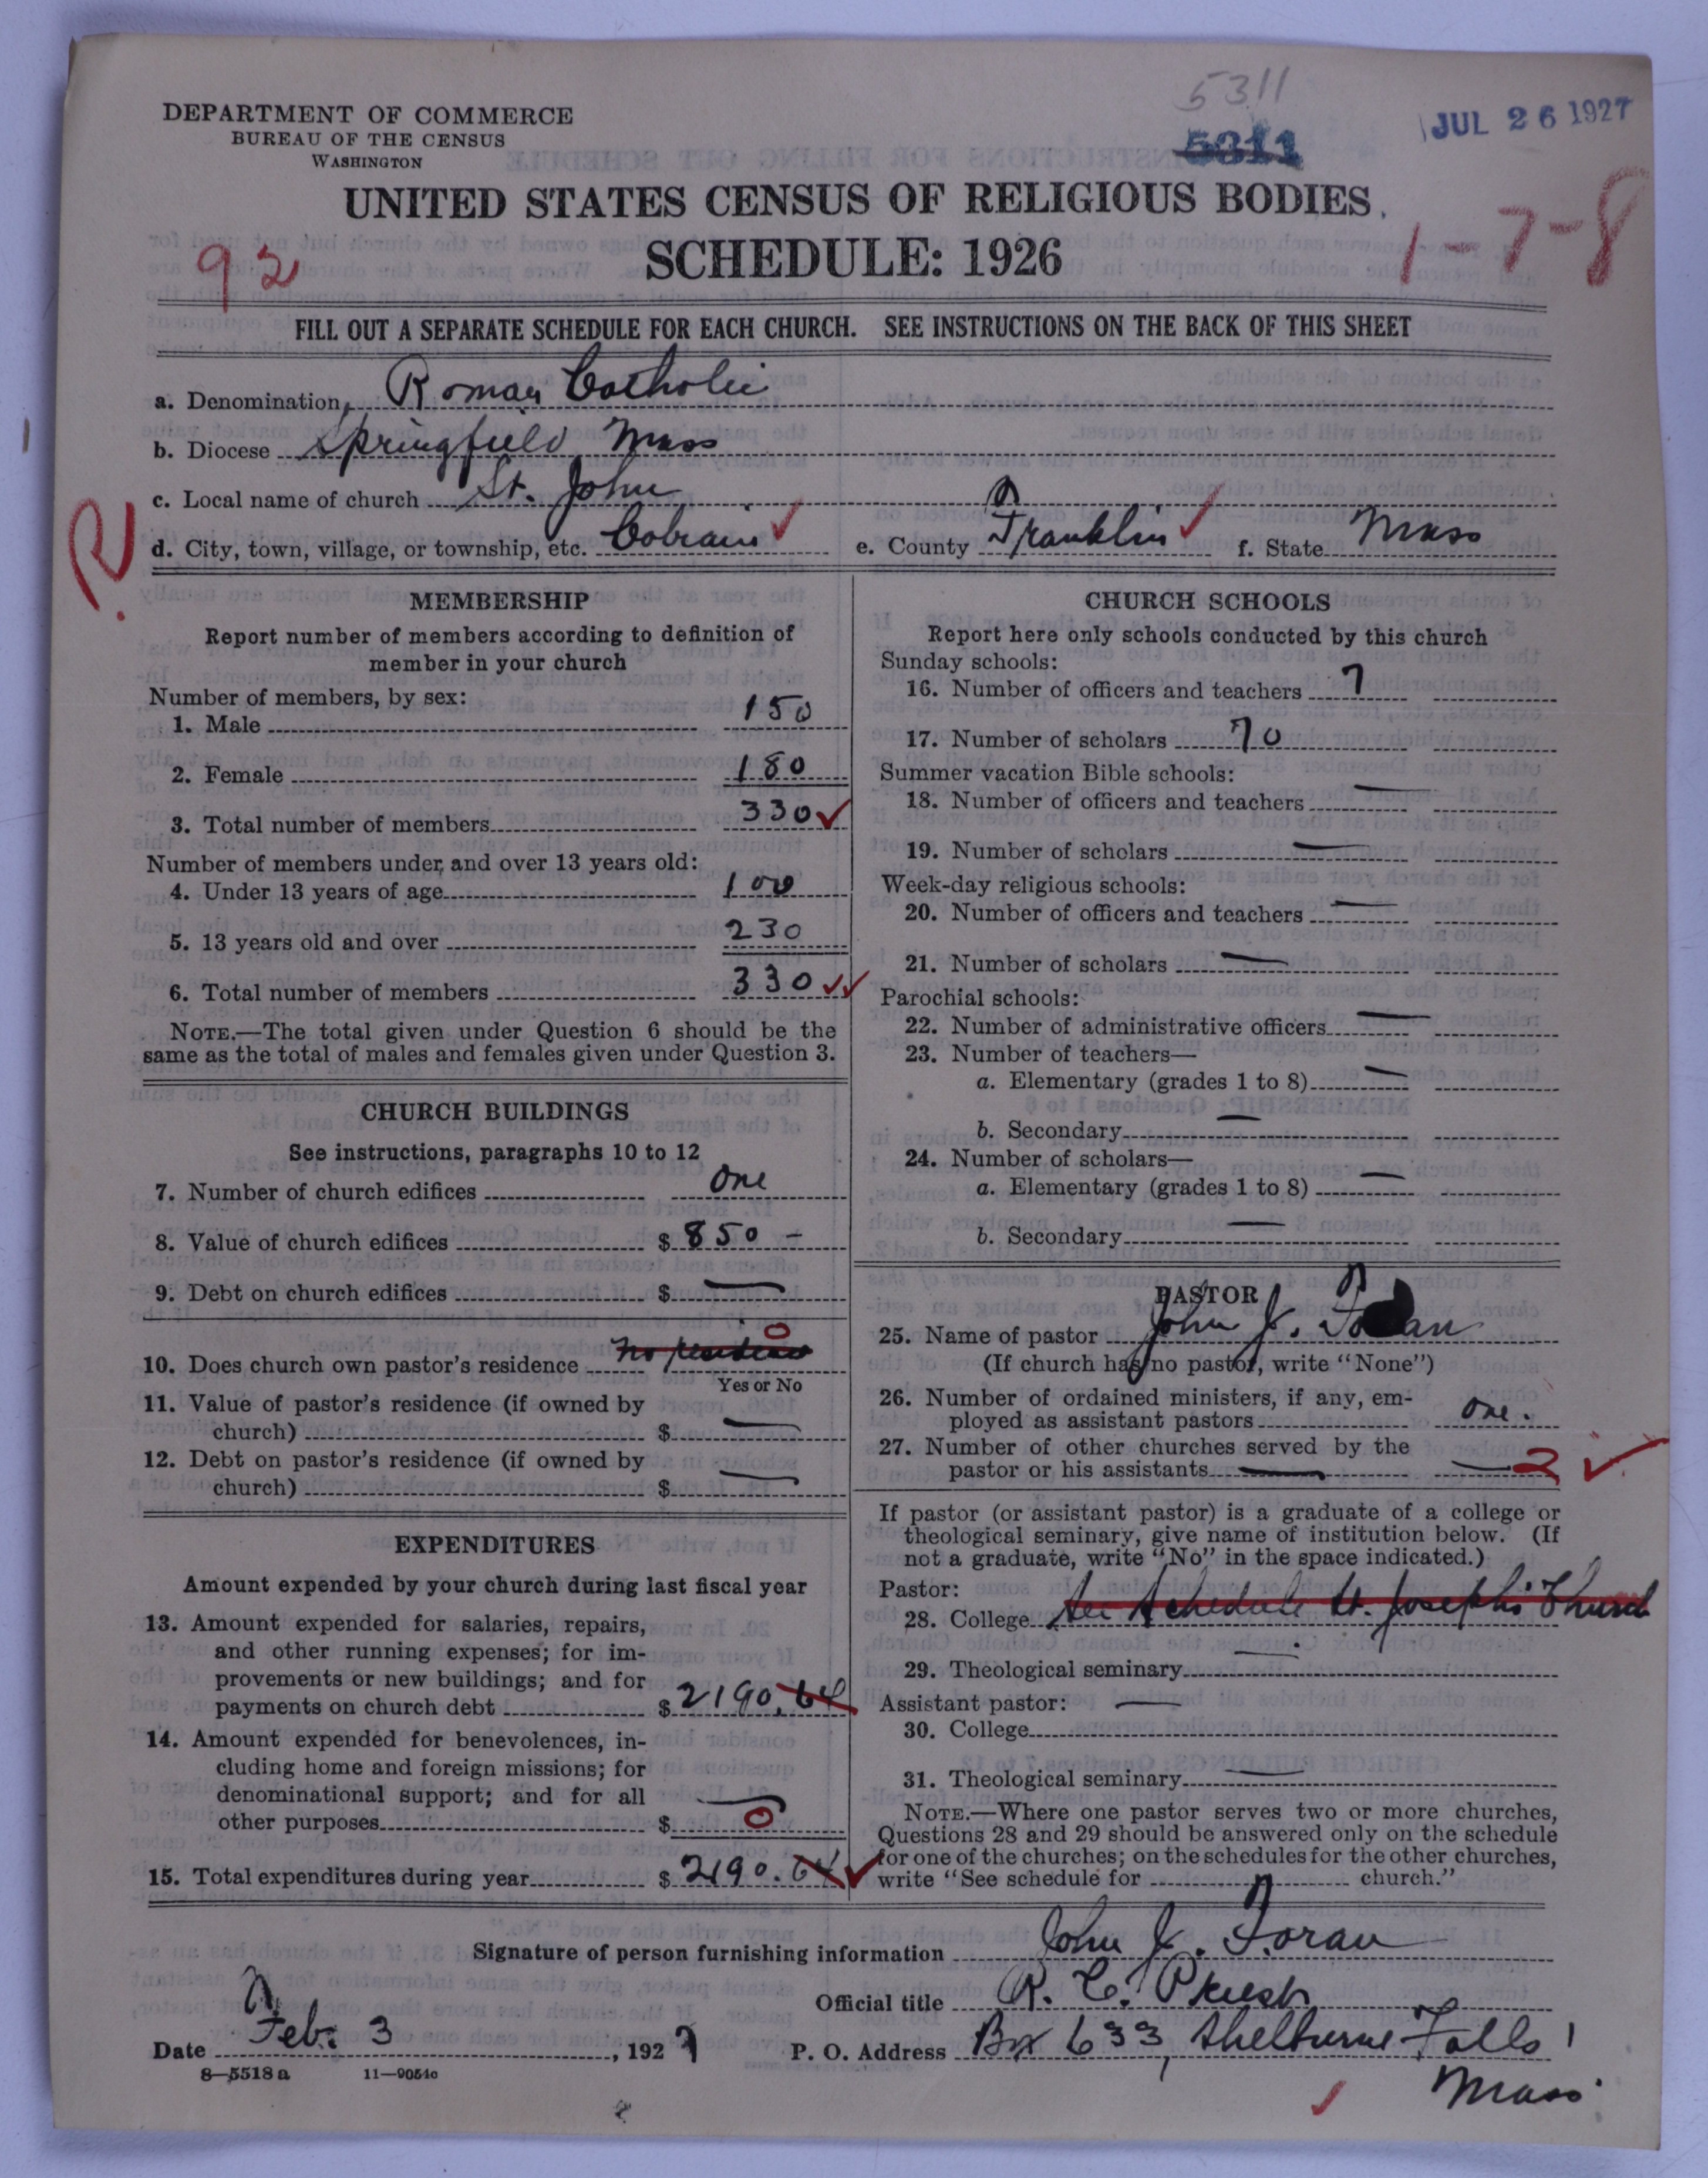 5311
DEPARTMENT OF COMMERCE
BUREAU OF THE CENSUS
WASHINGTON
5311
JUL 26 1927
UNITED STATES CENSUS OF RELIGIOUS BODIES
SCHEDULE: 1926
92
1-7-8
FILL OUT A SEPARATE SCHEDULE FOR EACH CHURCH. SEE INSTRUCTIONS ON THE BACK OF THIS SHEET
a. Denomination, Roman Catholic
b. Diocese Springfield Mass
c. Local name of church St. John
R
d. City, town, village, or township, etc. Colrain e. County Franklin f. State Mass
MEMBERSHIP
Report number of members according to definition of
member in your church
Number of members, by sex:
1. Male 150
2. Female 180
3. Total number of members 330
Number of members under and over 13 years old:
4. Under 13 years of age 100
5. 13 years old and over 230
6. Total number of members 330
NOTE.—The total given under Question 6 should be the
same as the total of males and females given under Question 3.
CHURCH BUILDINGS
See instructions, paragraphs 10 to 12
7. Number of church edifices One
8. Value of church edifices $ 850 -
9. Debt on church edifices $ —
0
10. Does church own pastor's residence No residence
Yes or No
11. Value of pastor's residence (if owned by
church) $ —
12. Debt on pastor's residence (if owned by
church) $ —
EXPENDITURES
Amount expended by your church during last fiscal year
13. Amount expended for salaries, repairs,
and other running expenses; for im-
provements or new buildings; and for
payments on church debt $ 2190.64
14. Amount expended for benevolences, in-
cluding home and foreign missions; for
denominational support; and for all —
other purposes $ 0
15. Total expenditures during year $ 2190.64
CHURCH SCHOOLS
Report here only schools conducted by this church
Sunday schools:
16. Number of officers and teachers 7
17. Number of scholars 70
Summer vacation Bible schools:
18. Number of officers and teachers —
19. Number of scholars —
Week-day religious schools:
20. Number of officers and teachers —
21. Number of scholars —
Parochial schools:
22. Number of administrative officers —
23. Number of teachers—
a. Elementary (grades 1 to 8) —
b. Secondary —
24. Number of scholars—
a. Elementary (grades 1 to 8) —
b. Secondary —
PASTOR
25. Name of pastor John J. Foran
(If church has no pastor, write "None")
26. Number of ordained ministers, if any, em-
ployed as assistant pastors one.
27. Number of other churches served by the
pastor or his assistants — — 2
If pastor (or assistant pastor) is a graduate of a college or
theological seminary, give name of institution below. (If
not a graduate, write "No" in the space indicated.)
Pastor:
28. College See Schedule St. Joseph's Church
29. Theological seminary —
Assistant pastor: —
30. College
31. Theological seminary —
NOTE.—Where one pastor serves two or more churches,
Questions 28 and 29 should be answered only on the schedule
for one of the churches; on the schedules for the other churches,
write "See schedule for church."
Signature of person furnishing information John J. Foran
Official title R. C. Priest
Date Feb. 3, 1927 P. O. Address Box 633, Shelburne Falls
Mass.
8—5518a 11—9051c